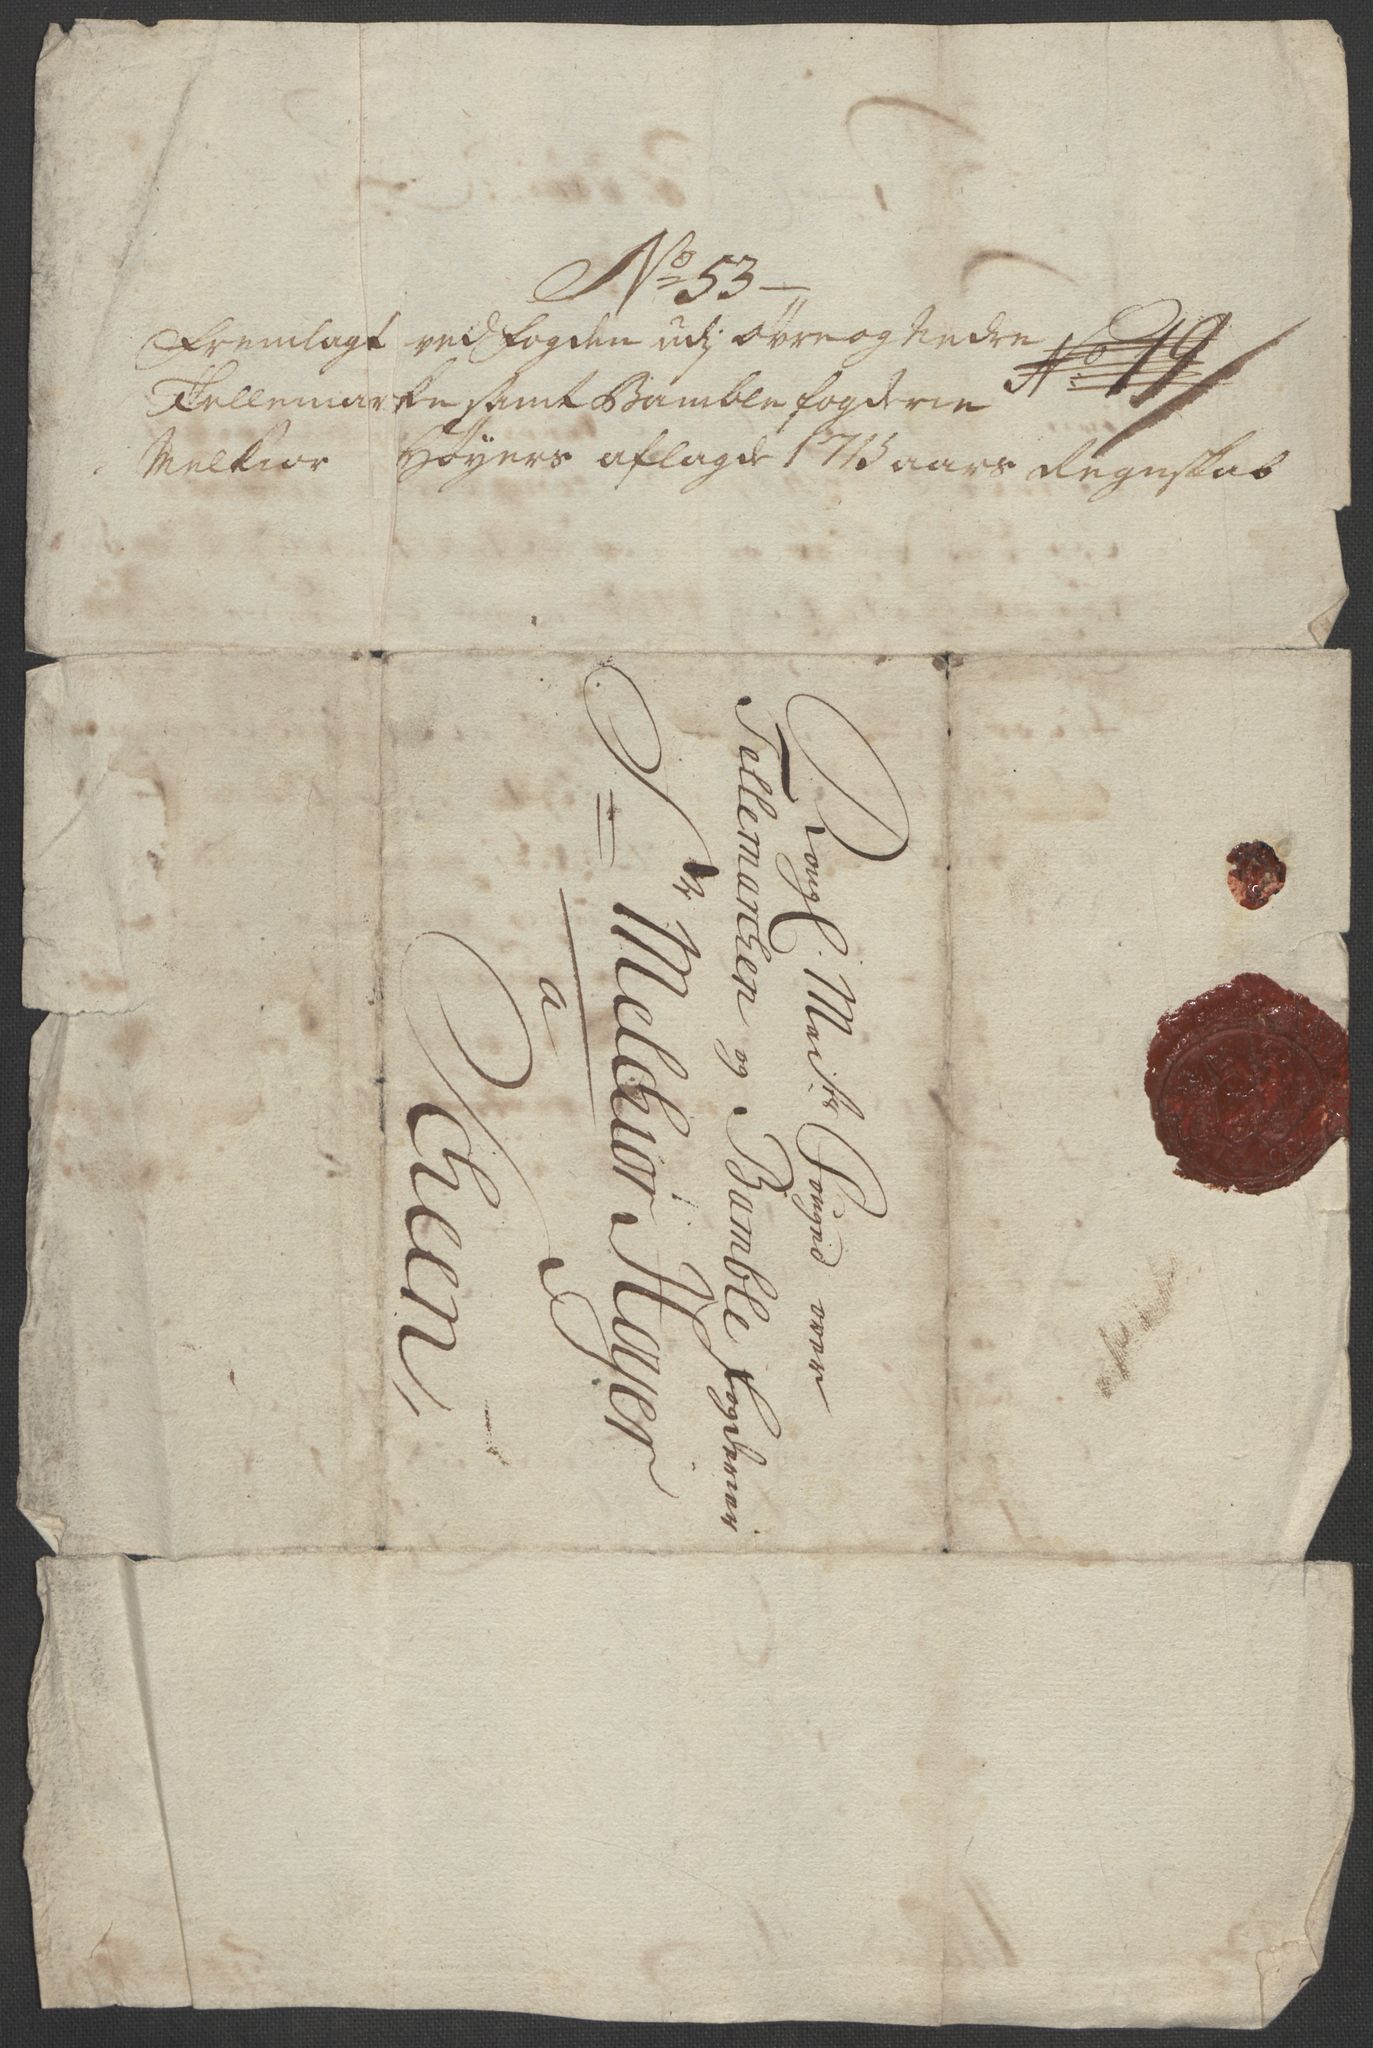 No 53
Fremlagt ved fogden udj øvre og Nedre
No 19
Tellemarken samt Bamble fogderie
Melkior Høyers aflagde 1715 aars Regnskab
Kongl. Maÿts fouged over
Tellemarken og Bamble fogderier
Sr Melchior Høyer
a
Scheen,